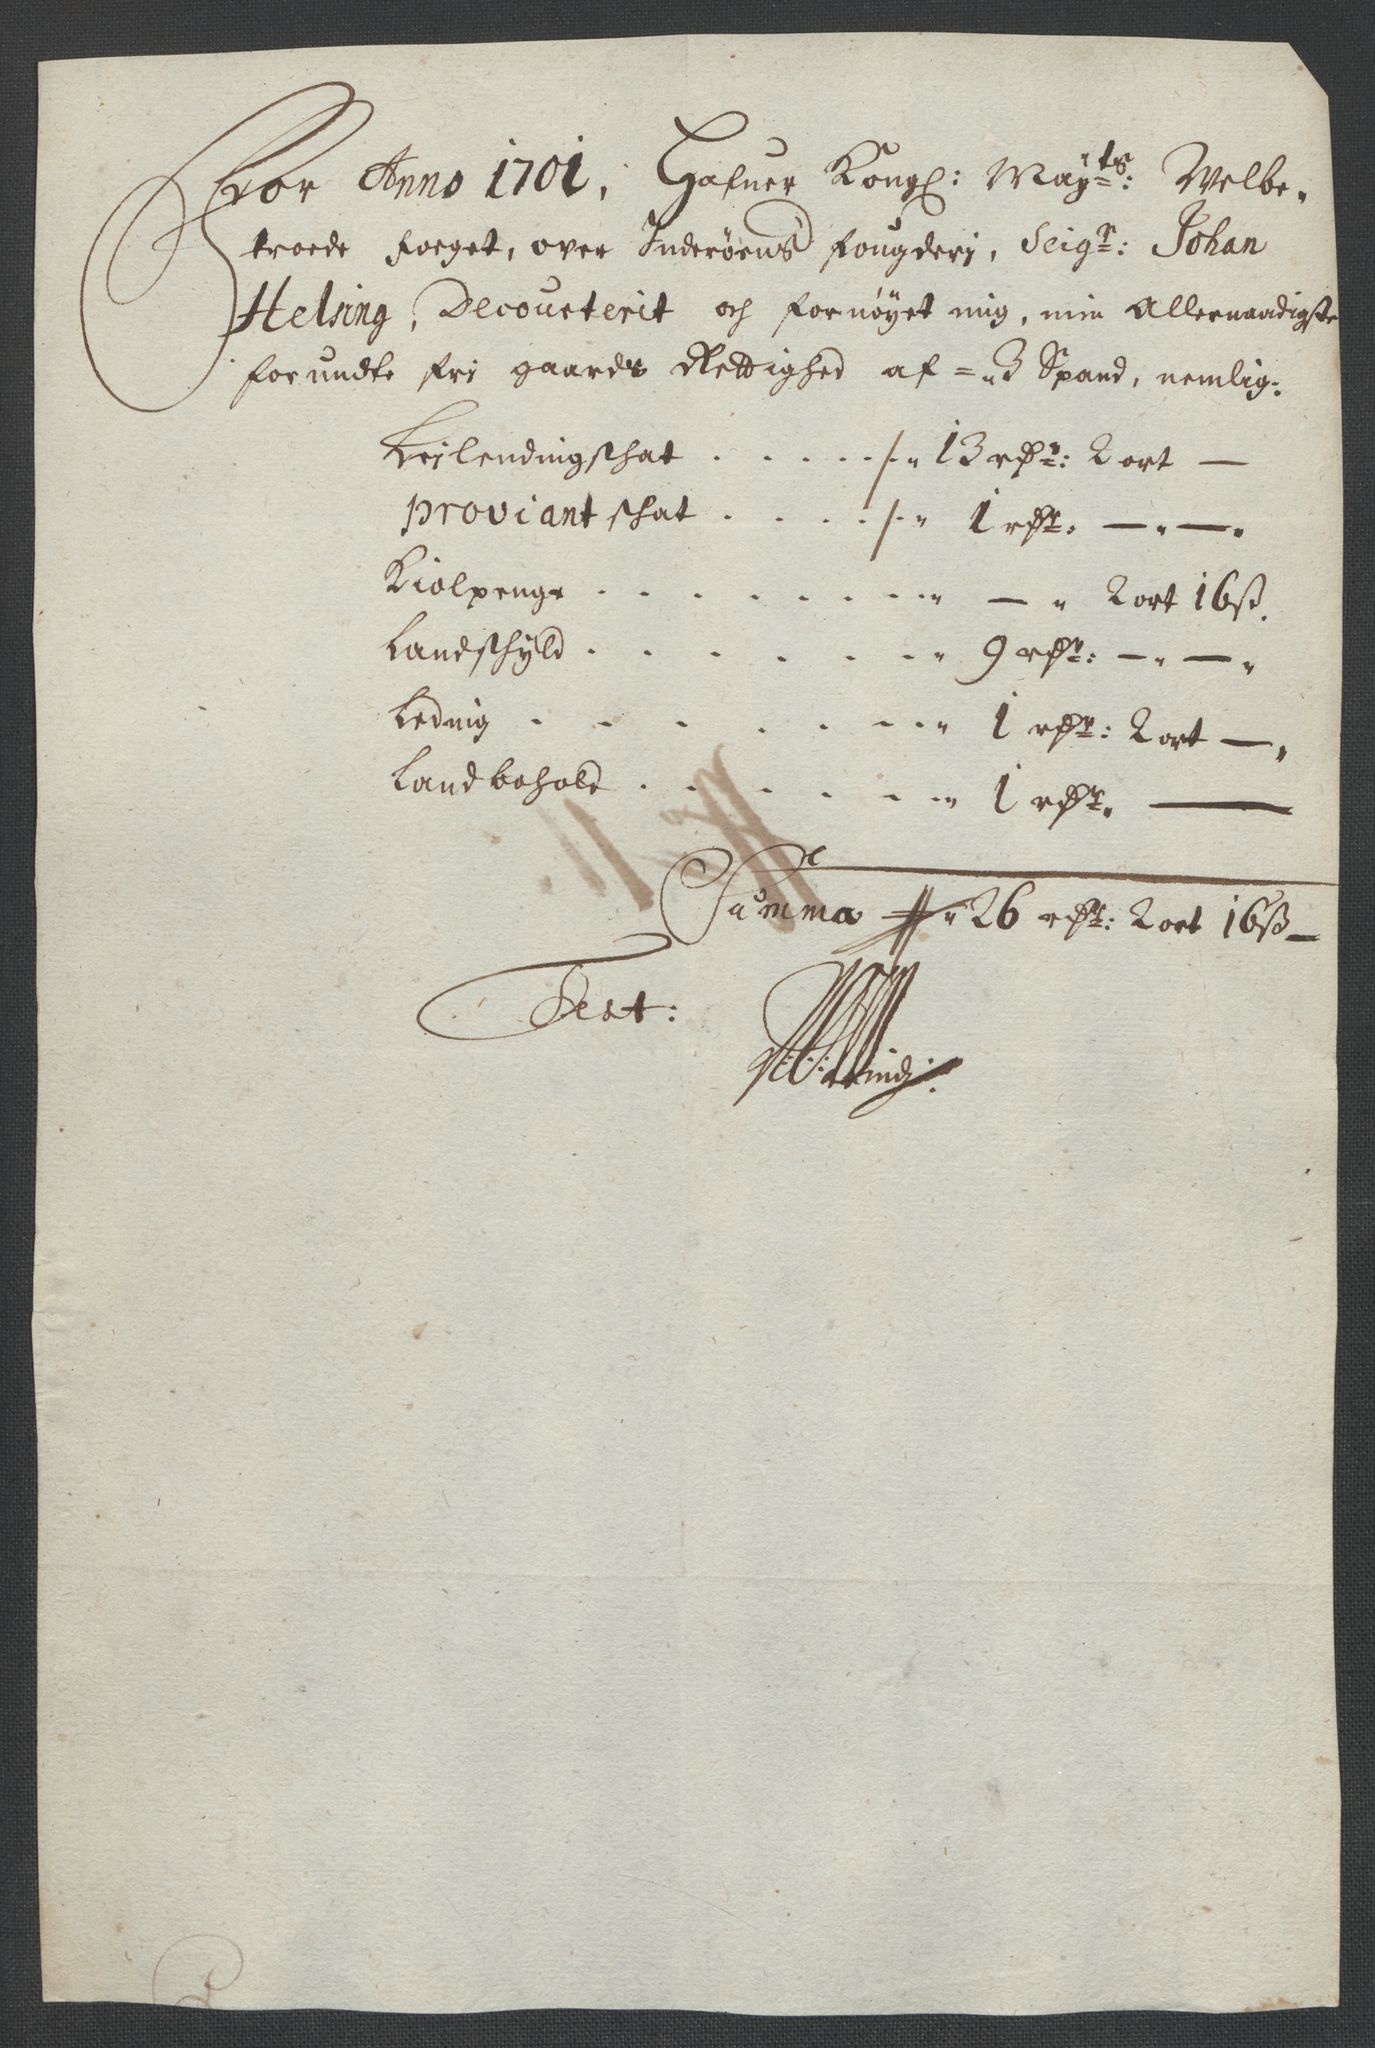 For Anno 1701, Hafuer Kongl: May:ts: Welbe-
troede foeget, over Inderøens fougderj, Seigr: Johan
Helsing, Decourterit och fornøyet mig, min Allernaadigste
forundte frj gaards Rettighed af =„3 Spand, nemlig:
Leilendingschat . . . . . ./.„ 13 rdr: 2 ort —
proviantschat . . . . ./.„ 1 rdr: —„—„
Kiolpenge . . . . . . . . .„ —„ 2 ort 16ß.
Landschyld . . . . . . . .„ 9 rdr: —„—„
Leding . . . . . . . .„ 1 rdr: 2 ort —„
Landbohold . . . . . . .„ 1 rdr. —
Summa „ 26 rdr: 2 ort 16ß—
Test: